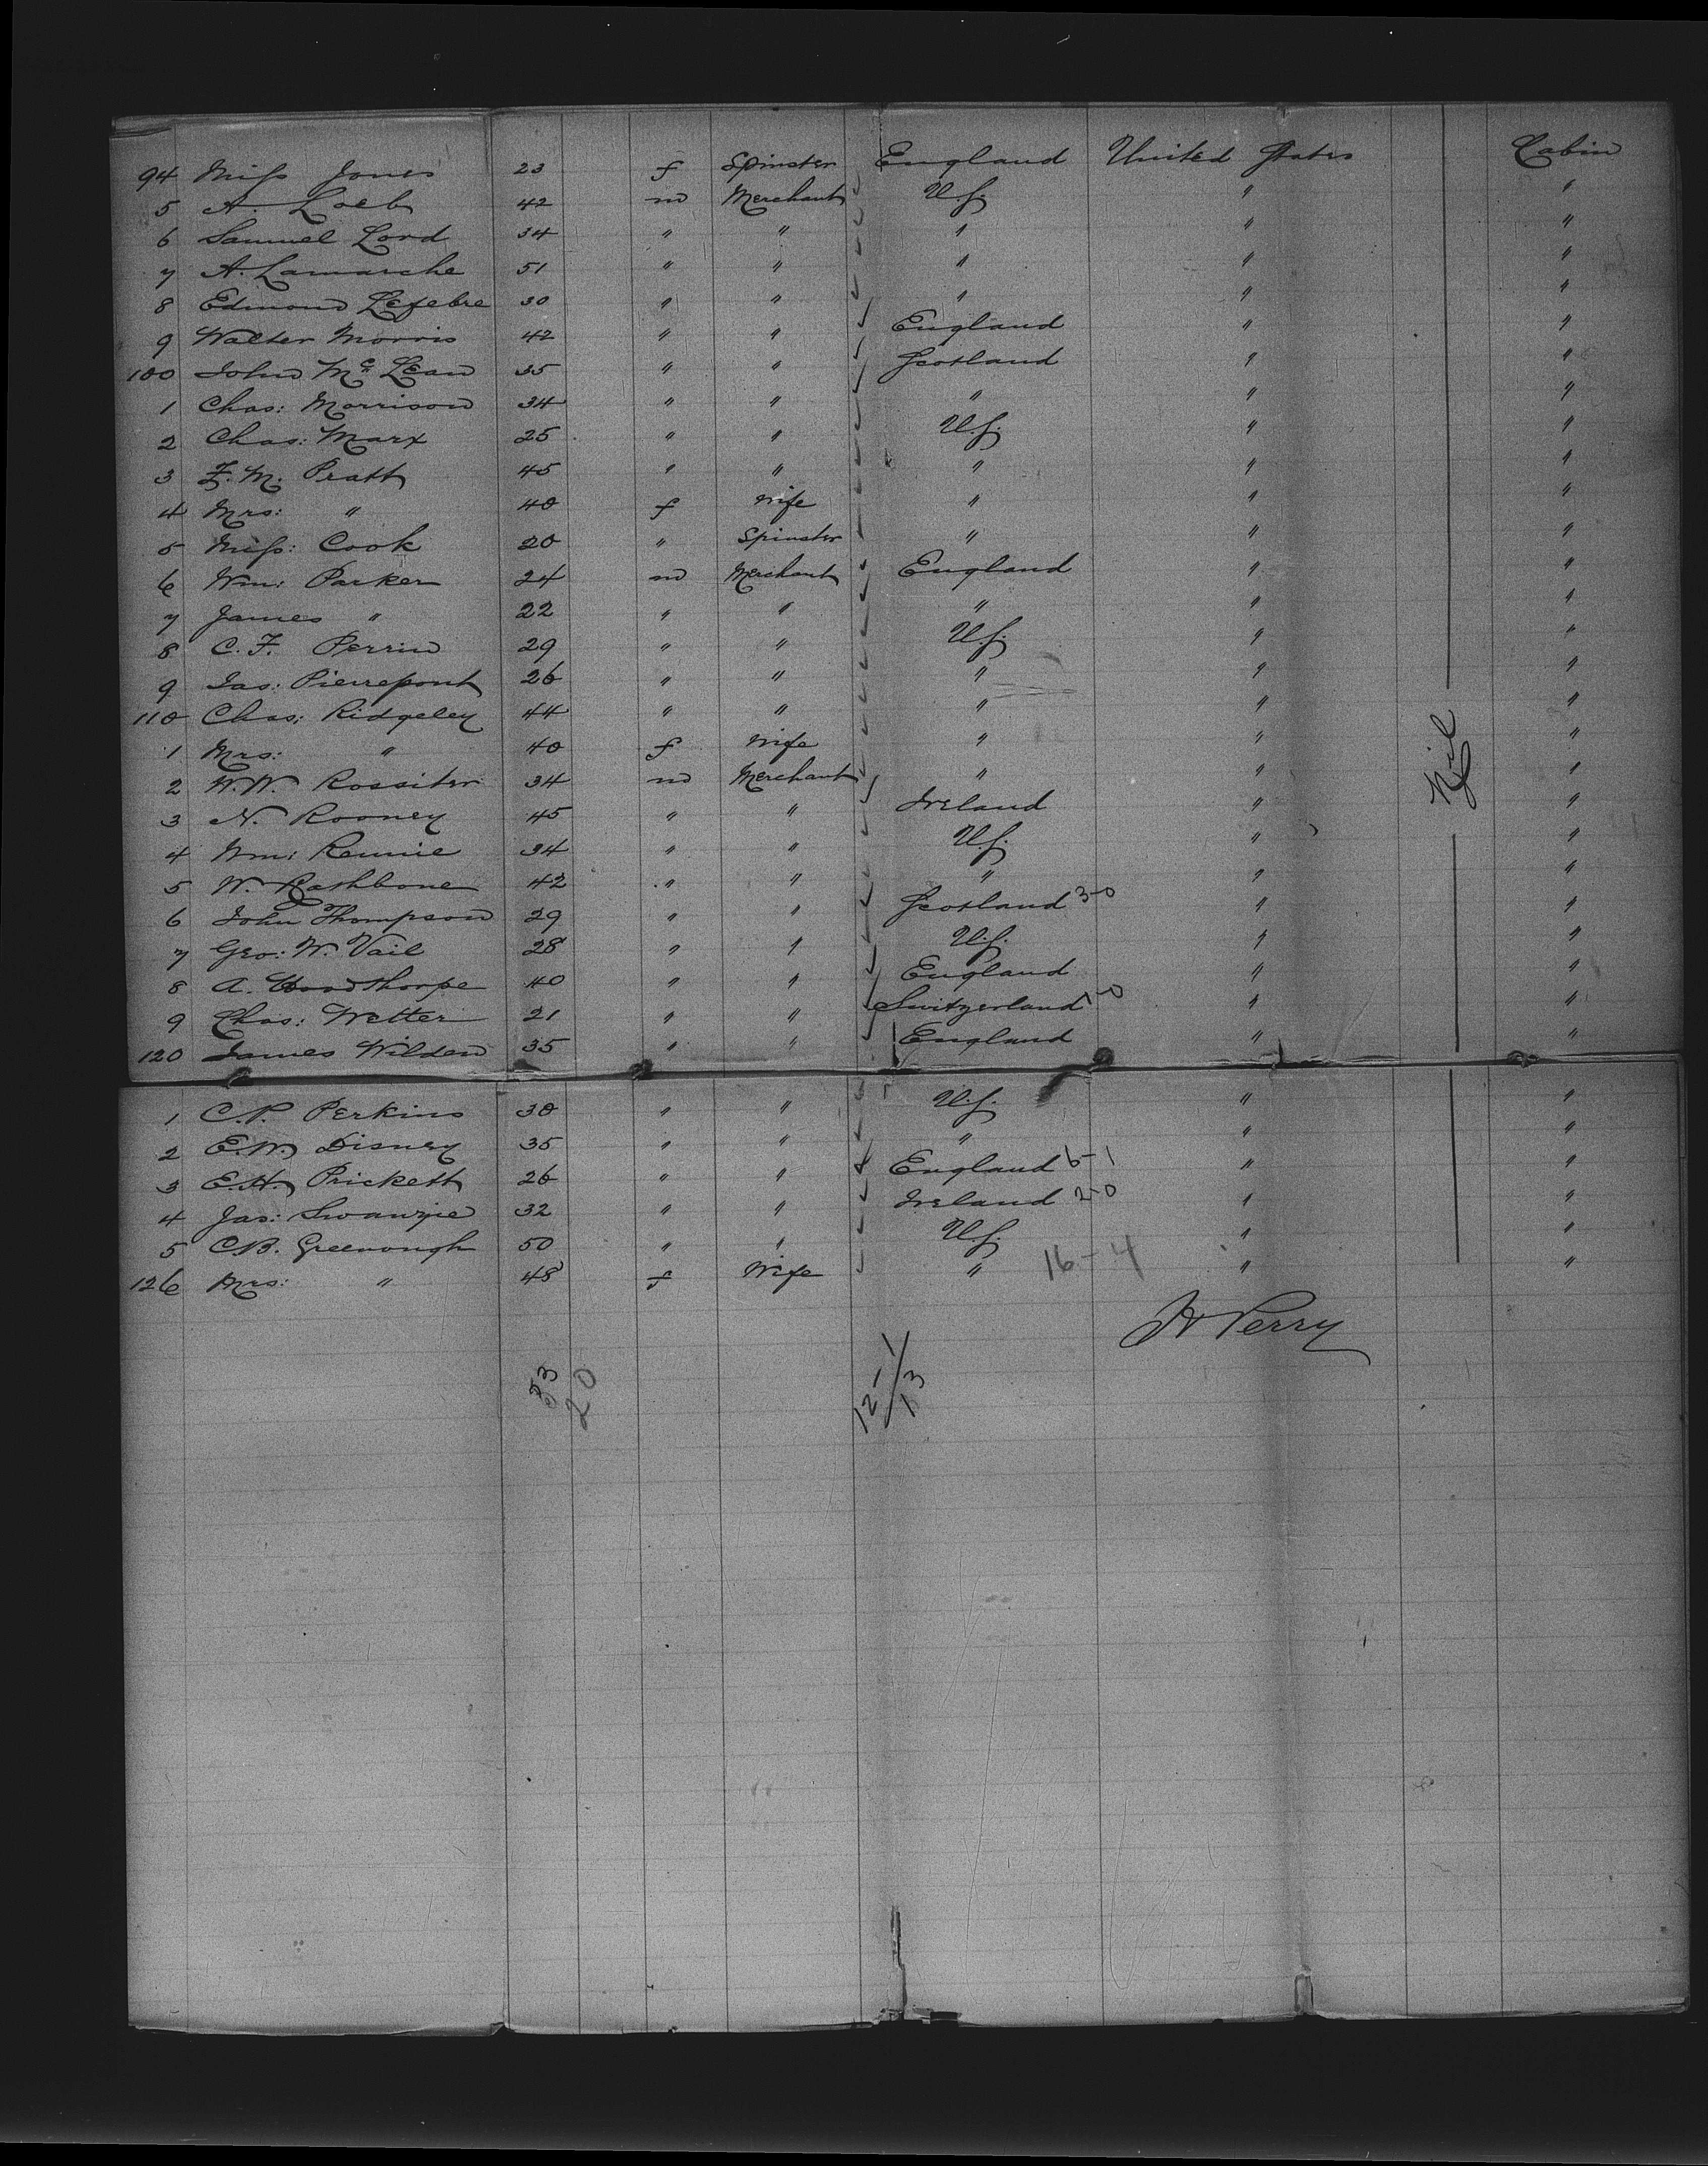 94 Miss Jones 23 f Spinster England United States Cabin
5 A. Loeb 42 m Merchant U.S. " "
6 Samuel Lord 34 " " " " "
7 A. Lamarche 51 " " " " "
8 Edmond Lefebre 30 " " " " "
9 Walter Morris 42 " " England " "
100 John McLean 35 " " Scotland " "
1 Chas: Morrison 34 " " " " "
2 Chas: Marx 25 " " U.S. " "
3 Z. M. Pratt 45 " " " " "
4 Mrs: " 40 f Wife " " "
5 Miss: Cook 20 " Spinster " " "
6 Wm: Parker 24 m Merchant England " "
7 James " 22 " " " " "
8 C. F. Perrin 29 " " U.S. " "
9 Jas: Pierrepont 26 " " " " "
110 Chas: Ridgeley 44 " " " " "
1 Mrs: " 40 f Wife " " Nil "
2 W.W. Rossiter 34 m Merchant " " "
3 N. Rooney 45 " " Ireland " "
4 Wm: Rennie 34 " " U.S. " "
5 W. Rathbone 42 " " " " "
6 John Thompson 29 " " Scotland 3-0 " "
7 Geo: W. Vail 28 " " U.S. " "
8 A. Woodthorpe 40 " " England " "
9 Chas: Wetter 21 " " Switzerland 1-0 " "
120 James Wilden 35 " " England " "
1 C.P. Perkins 30 " " U.S. " "
2 E.W. Disney 35 " " " " "
3 E.H. Prickett 26 " " England 6-1 " "
4 Jas: Swanzie 32 " " Ireland 2-0 " "
5 C.B. Greenough 50 " " U.S. " "
126 Mrs: " 48 f Wife " 16-4 " "
H Perry
53
20
12-1
13